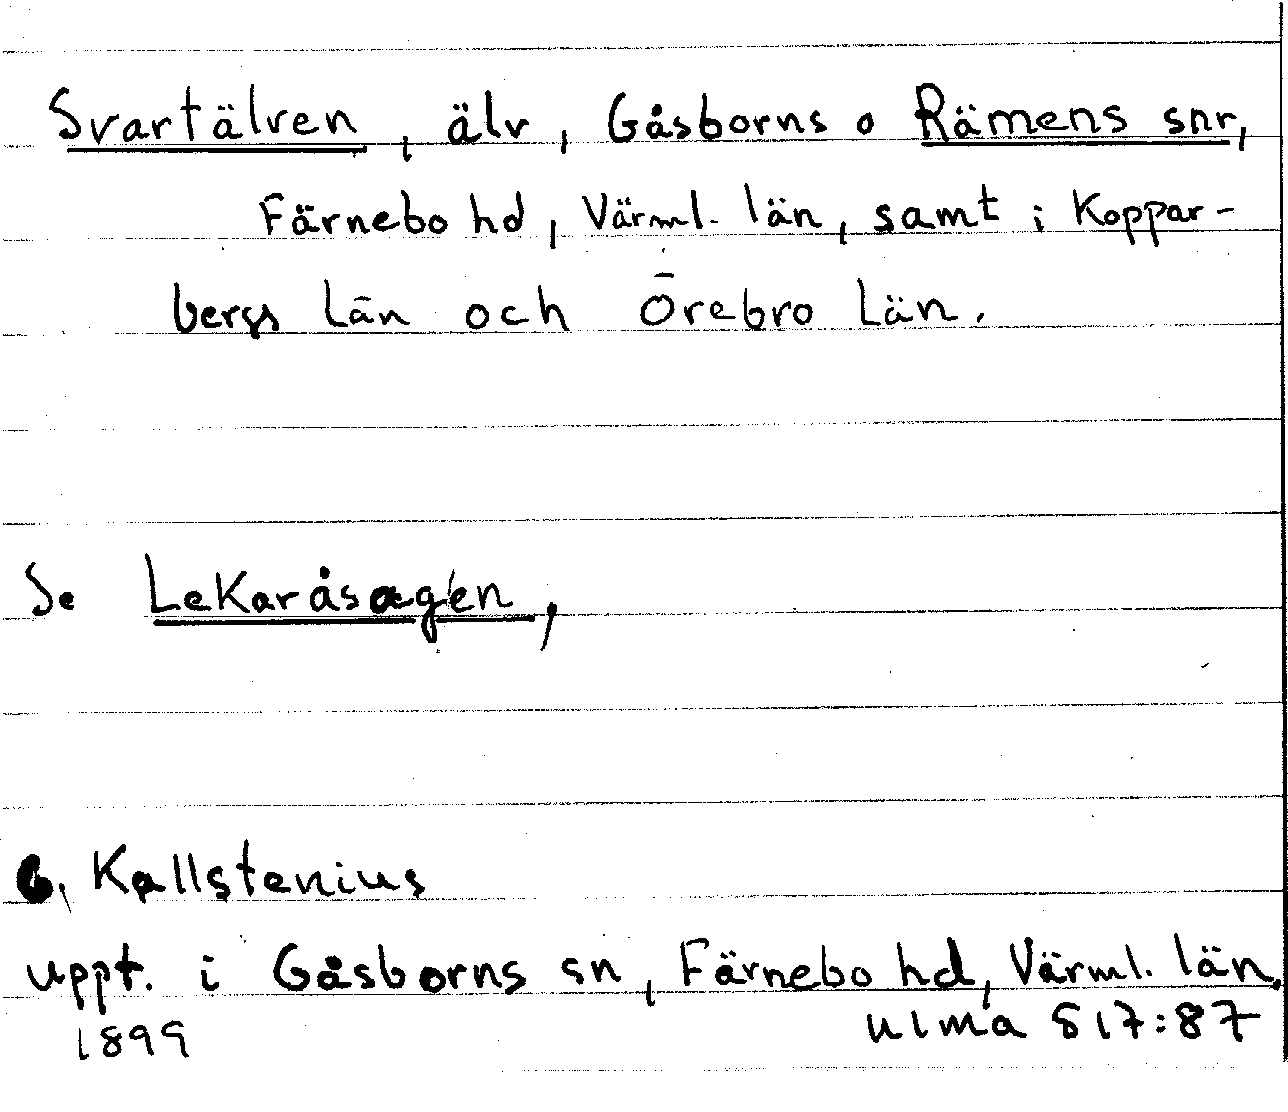 Svartälven, älv, Gåsborns o Rämens snr,
Färnebo hd, Värml. län, samt i Koppar-
bergs län och Örebro län.
Se Lekaråsagen,
G. Kallstenius
uppt. i Gåsborns sn, Färnebo hd, Värml. län.
1899 ulma 517:87